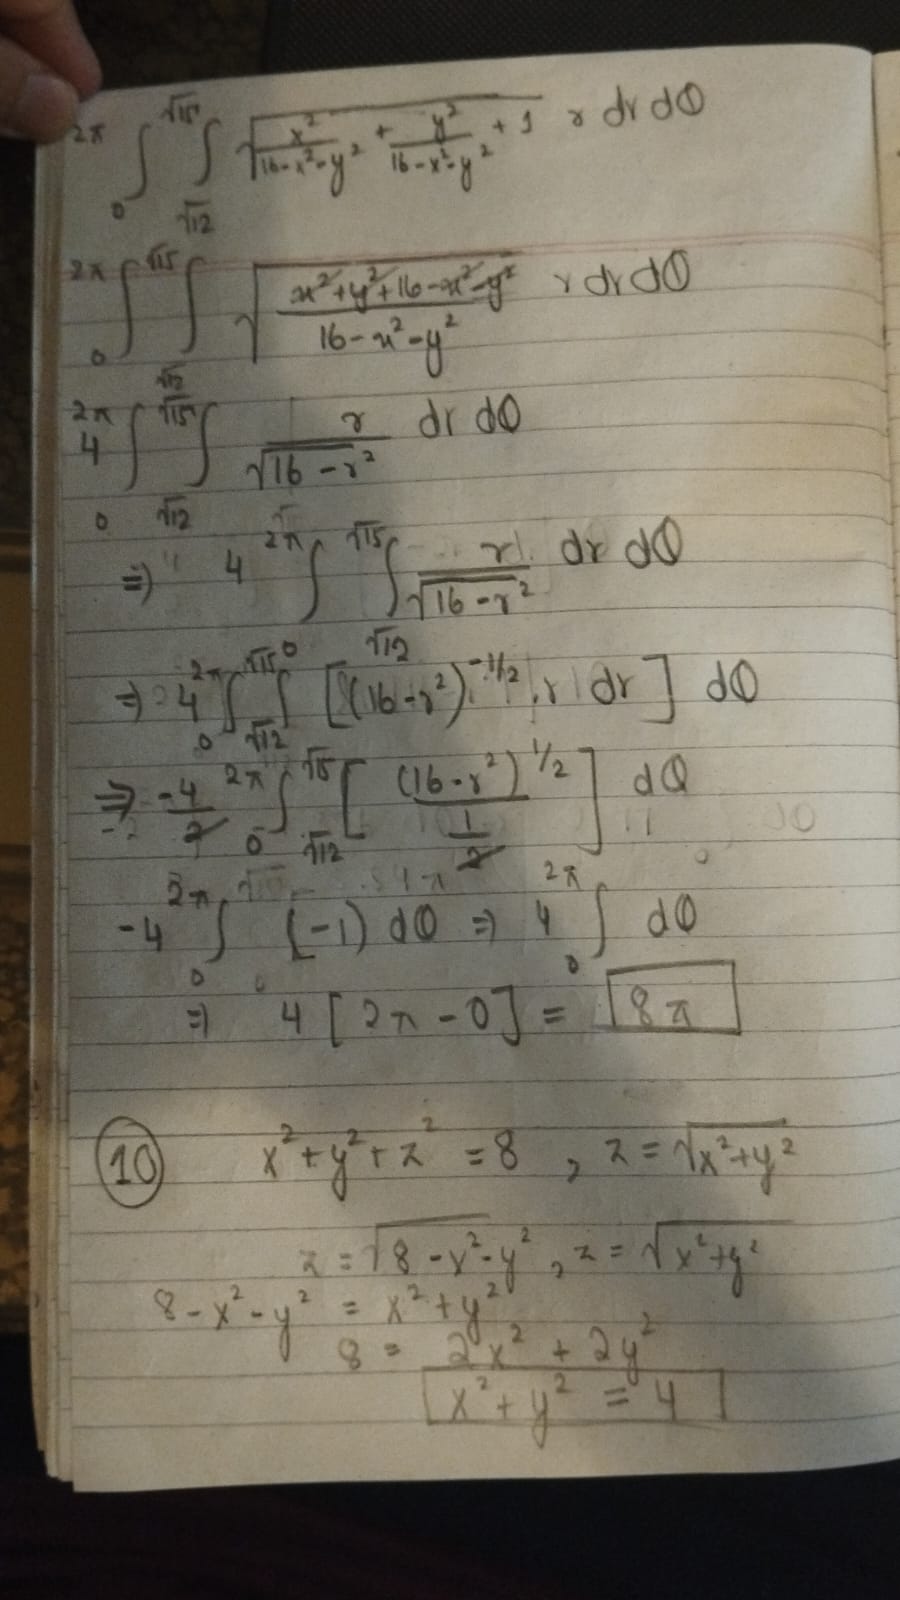 2π∫0 √15∫√12 √(x²/(16-x²-y²) + y²/(16-x²-y²) + 1) r dr dθ
2π∫0 √15∫√12 √((x²+y²+16-x²-y²)/(16-x²-y²)) r dr dθ
4 2π∫0 √15∫√12 r/√(16-r²) dr dθ
⇒ 4 2π∫0 √15∫√12 r/√(16-r²) dr dθ
⇒ 4 2π∫0 √15∫√12 [(16-r²)^(-1/2) . r dr] dθ
⇒ -4/2 2π∫0 √15 √12 [(16-r²)^(1/2) / (1/2)] dθ
-4 2π∫0 (-1) dθ ⇒ 4 2π∫0 dθ
⇒ 4 [2π-0] = 8π
10 x²+y²+z² = 8 , z = √(x²+y²)
z = √(8-x²-y²) , z = √(x²+y²)
8-x²-y² = x²+y²
8 = 2x² + 2y²
x²+y² = 4